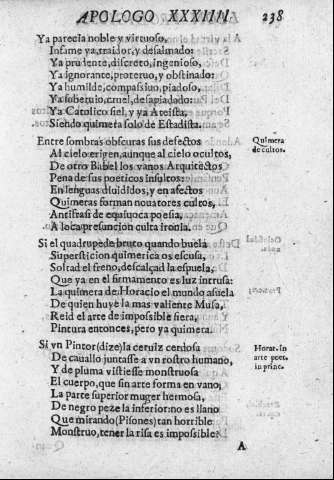 APOLOGO XXXIIII. 238
Ya parecia noble y virtuoso,
Infame ya, traidor, y desalmado:
Ya prudente, discreto, ingenioso,
Ya ignorante, proteruo, y obstinado:
Ya humilde, compassiuo, piadoso,
Ya soberuio, cruel, desapiadado:
Ya Catolico fiel, y ya Ateista,
Siendo quimera solo de Estadista.
Entre sombras obscuras sus defectos
Quimera
de cultos.
Al cielo erigen, aunque al cielo ocultos,
De otro Babel los vanos Arquitectos
Pena de sus poeticos insultos:
En lenguas diuididos, y en afectos
Quimeras forman nouatores cultos,
Antifrasi de equiuoca poesia,
A loca presuncion culta ironia.
Si el quadrupede bruto quando buela
Supersticion quimerica os escusa,
Soltad el freno, descalçad la espuela,
Que ya en el firmamento es luz intrusa:
La quimera de Horacio el mundo asuela
De quien huye la mas valiente Musa,
Reid el arte de impossible fiera,
Pintura entonces, pero ya quimera.
Si vn Pintor (dize) la ceruiz cerdosa
Horat. in
arte poet.
in princ.
De cauallo juntasse a vn rostro humano,
Y de pluma vistiesse monstruosa
El cuerpo, que sin arte forma en vano;
La parte superior muger hermosa,
De negro peze la inferior: no es llano
Que mirando (Pisones) tan horrible
Monstruo, tener la risa es impossible?
A